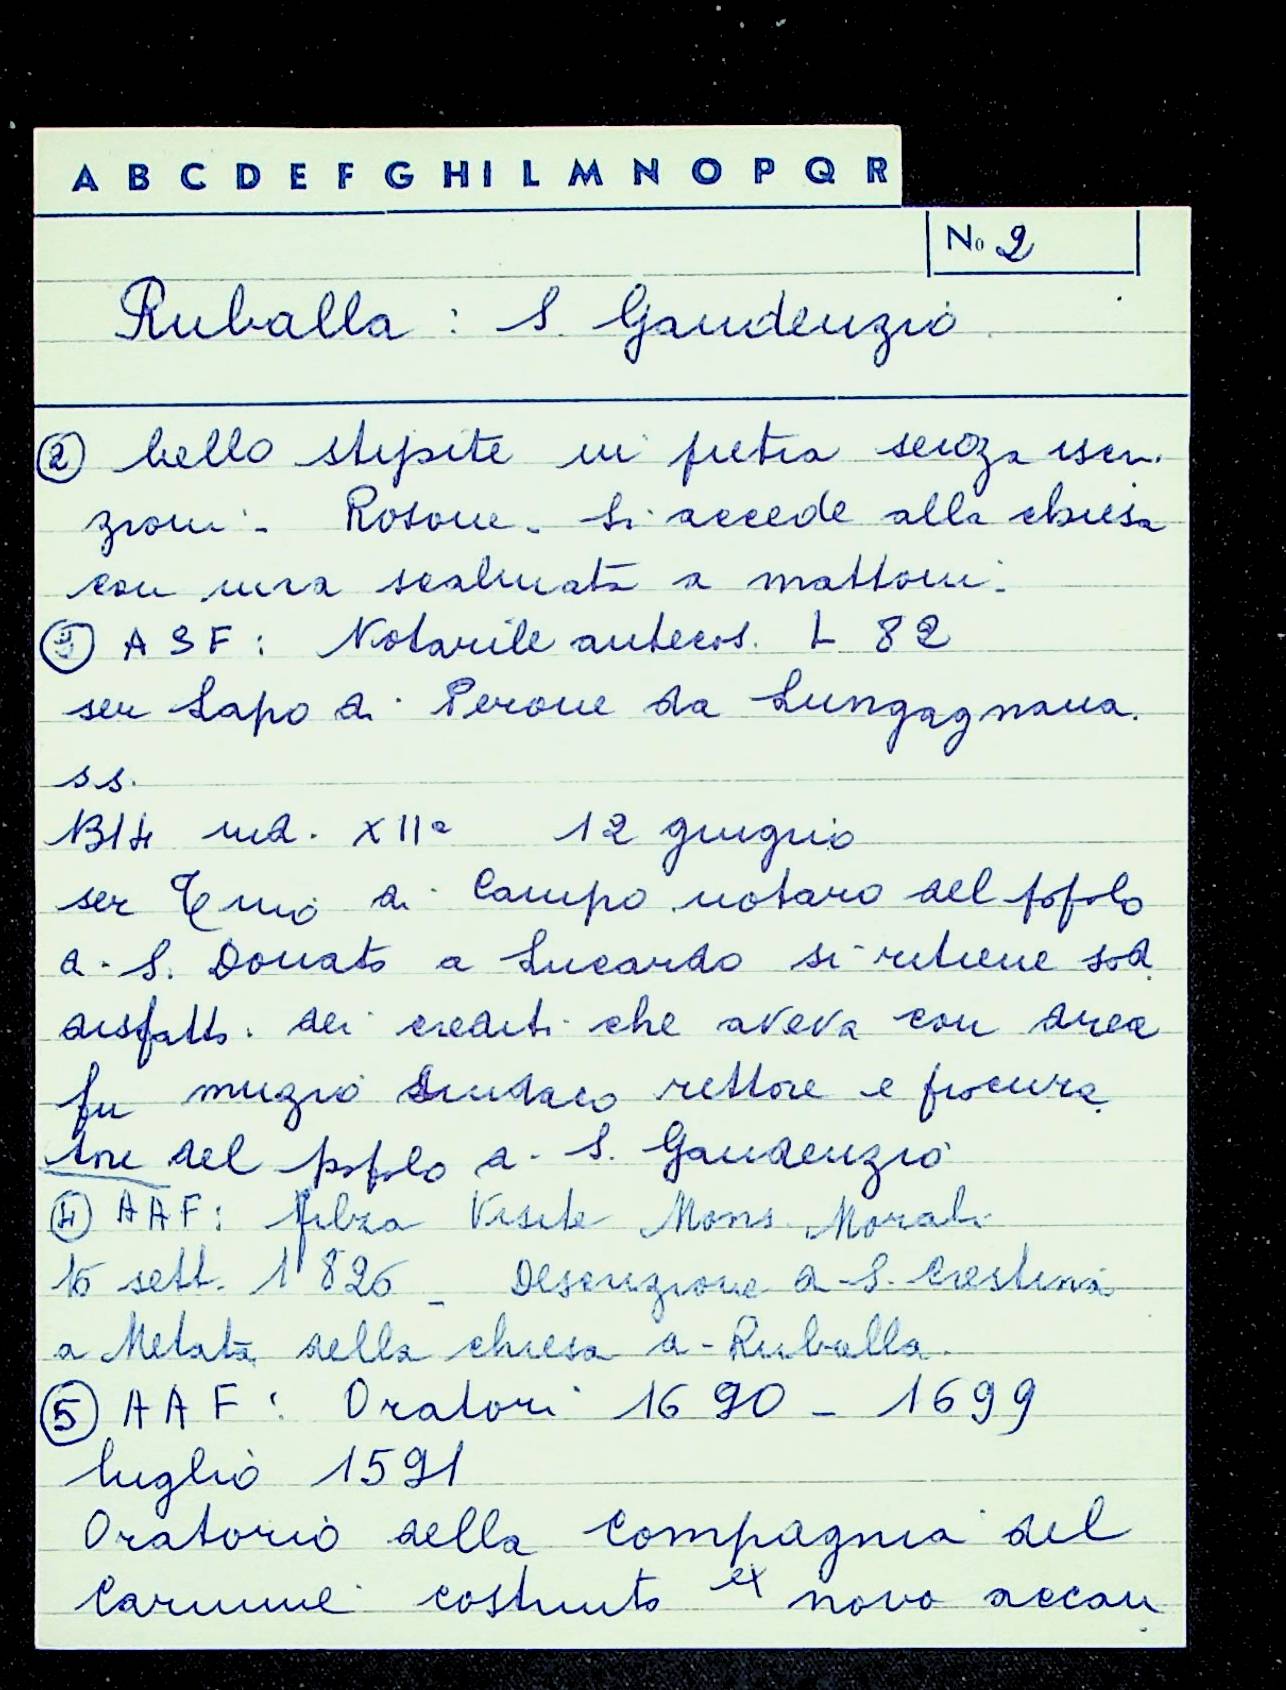 A B C D E F G H I L M N O P Q R
No 2
Ruballa : S. Gaudenzio
② bello stipite in pietra senza iscri.
zioni - Rosone - Si accede alla chiesa
con una scalinata a mattoni.
③ ASF: Notarile antecos. L 82
ser Lapo di Perone da Lungagnana.
ss.
1314 ind. XIIa 12 giugno
ser di Campo notaro del popolo
di S. Donato a Lucardo si ritiene sod
disfatto dei crediti che aveva con
fu muzio sindaco rettore e procura
tore del popolo di S. Gaudenzio
④ AAF: filza Visite Mons. Morali
16 sett. 1826 - Descrizione di S. Cristina
a Metata della chiesa di Ruballa.
⑤ AAF: Oratori 1690 - 1699
luglio 1591
Oratorio della Compagnia del
Carmine costruito ex novo accan